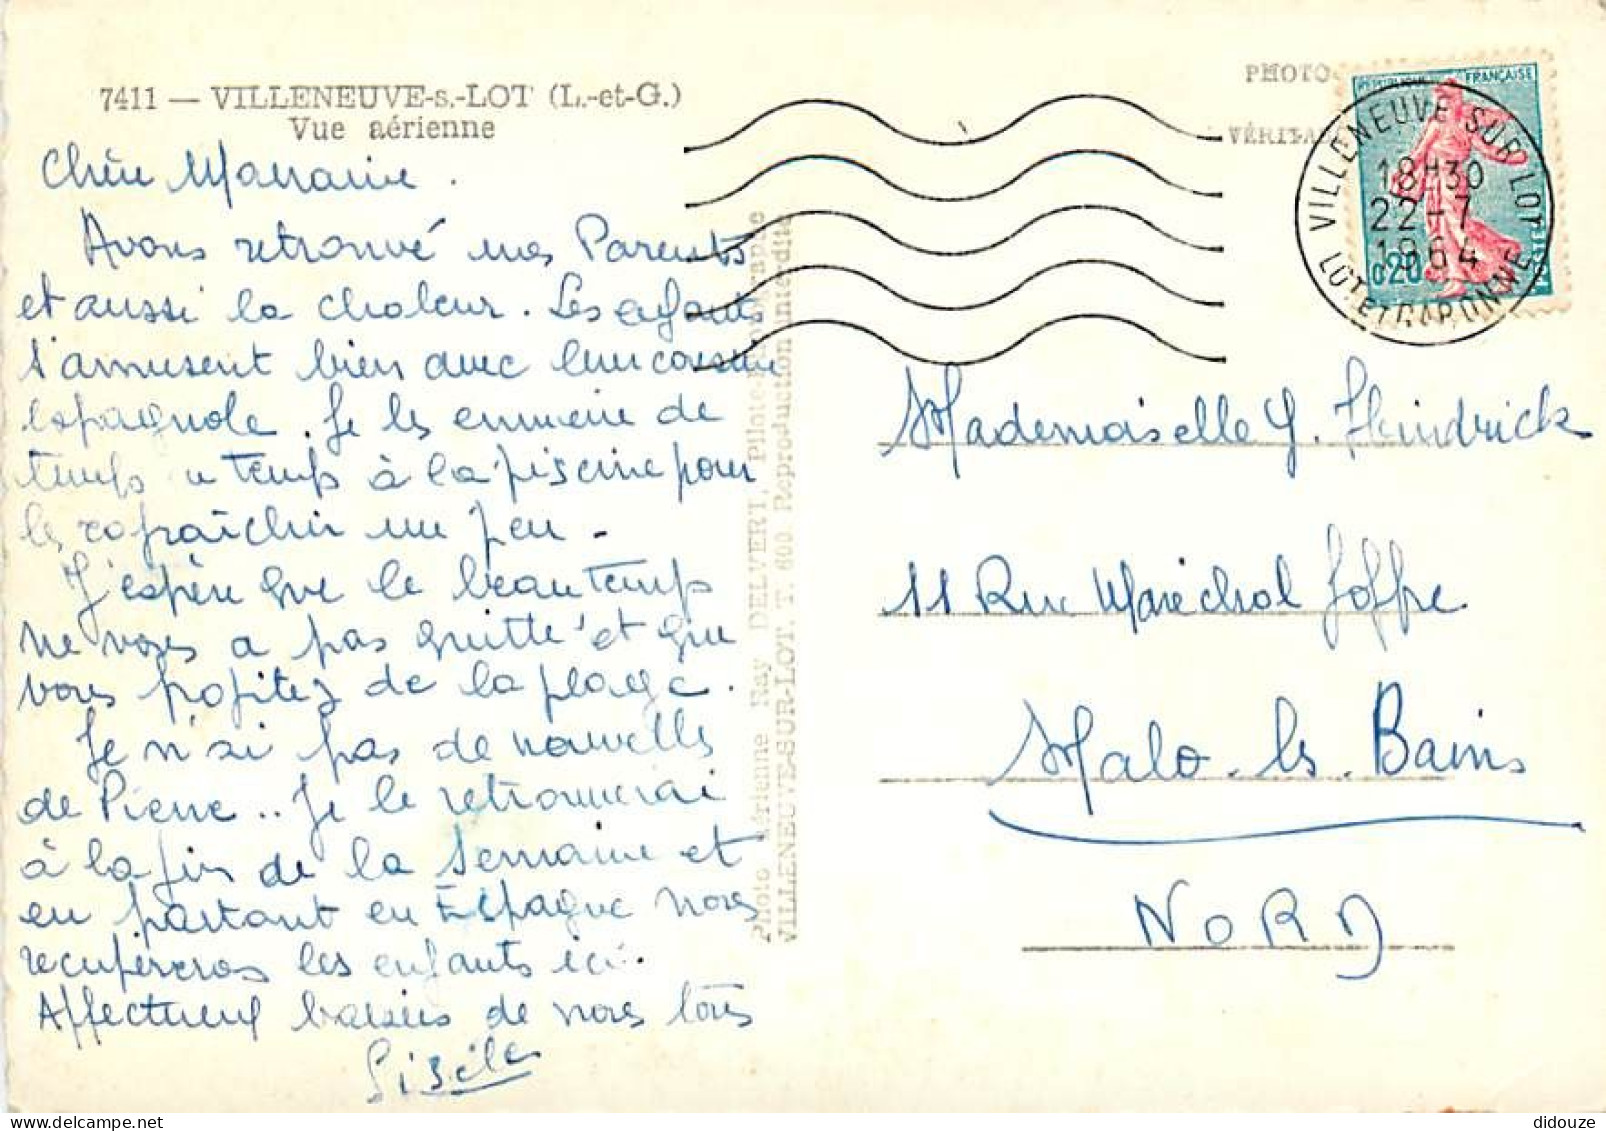 7411 — VILLENEUVE-s.-LOT (L.-et-G.)
Vue aérienne
Chère Marraine.
Avons retrouvé mes Parents
et aussi la chaleur. Les enfants
s'amusent bien avec leur cousine
espagnole. Je les emmène de
temps en temps à la piscine pour
les rafraîchir un peu -
J'espère que le beau temps
ne vous a pas quitté et que
vous profitez de la plage.
Je n'ai pas de nouvelles
de Pierre.. Je le retrouverai
à la fin de la semaine et
en partant en Espagne nous
recupérerons les enfants ici.
Affectueux baisers de nous tous
Gisèle
Photo aérienne Ray DELVERT, Pilote-Photographe
VILLENEUVE-SUR-LOT. T. 600 Reproduction interdite
PHOTO
VÉRITA
RÉPUBLIQUE FRANÇAISE
0,20
VILLENEUVE SUR LOT
18H30
22-7
1964
LOT ET GARONNE
Mademoiselle Y. Heindrick
11 Rue Maréchal Joffre
Malo-les-Bains
NORD
didouze